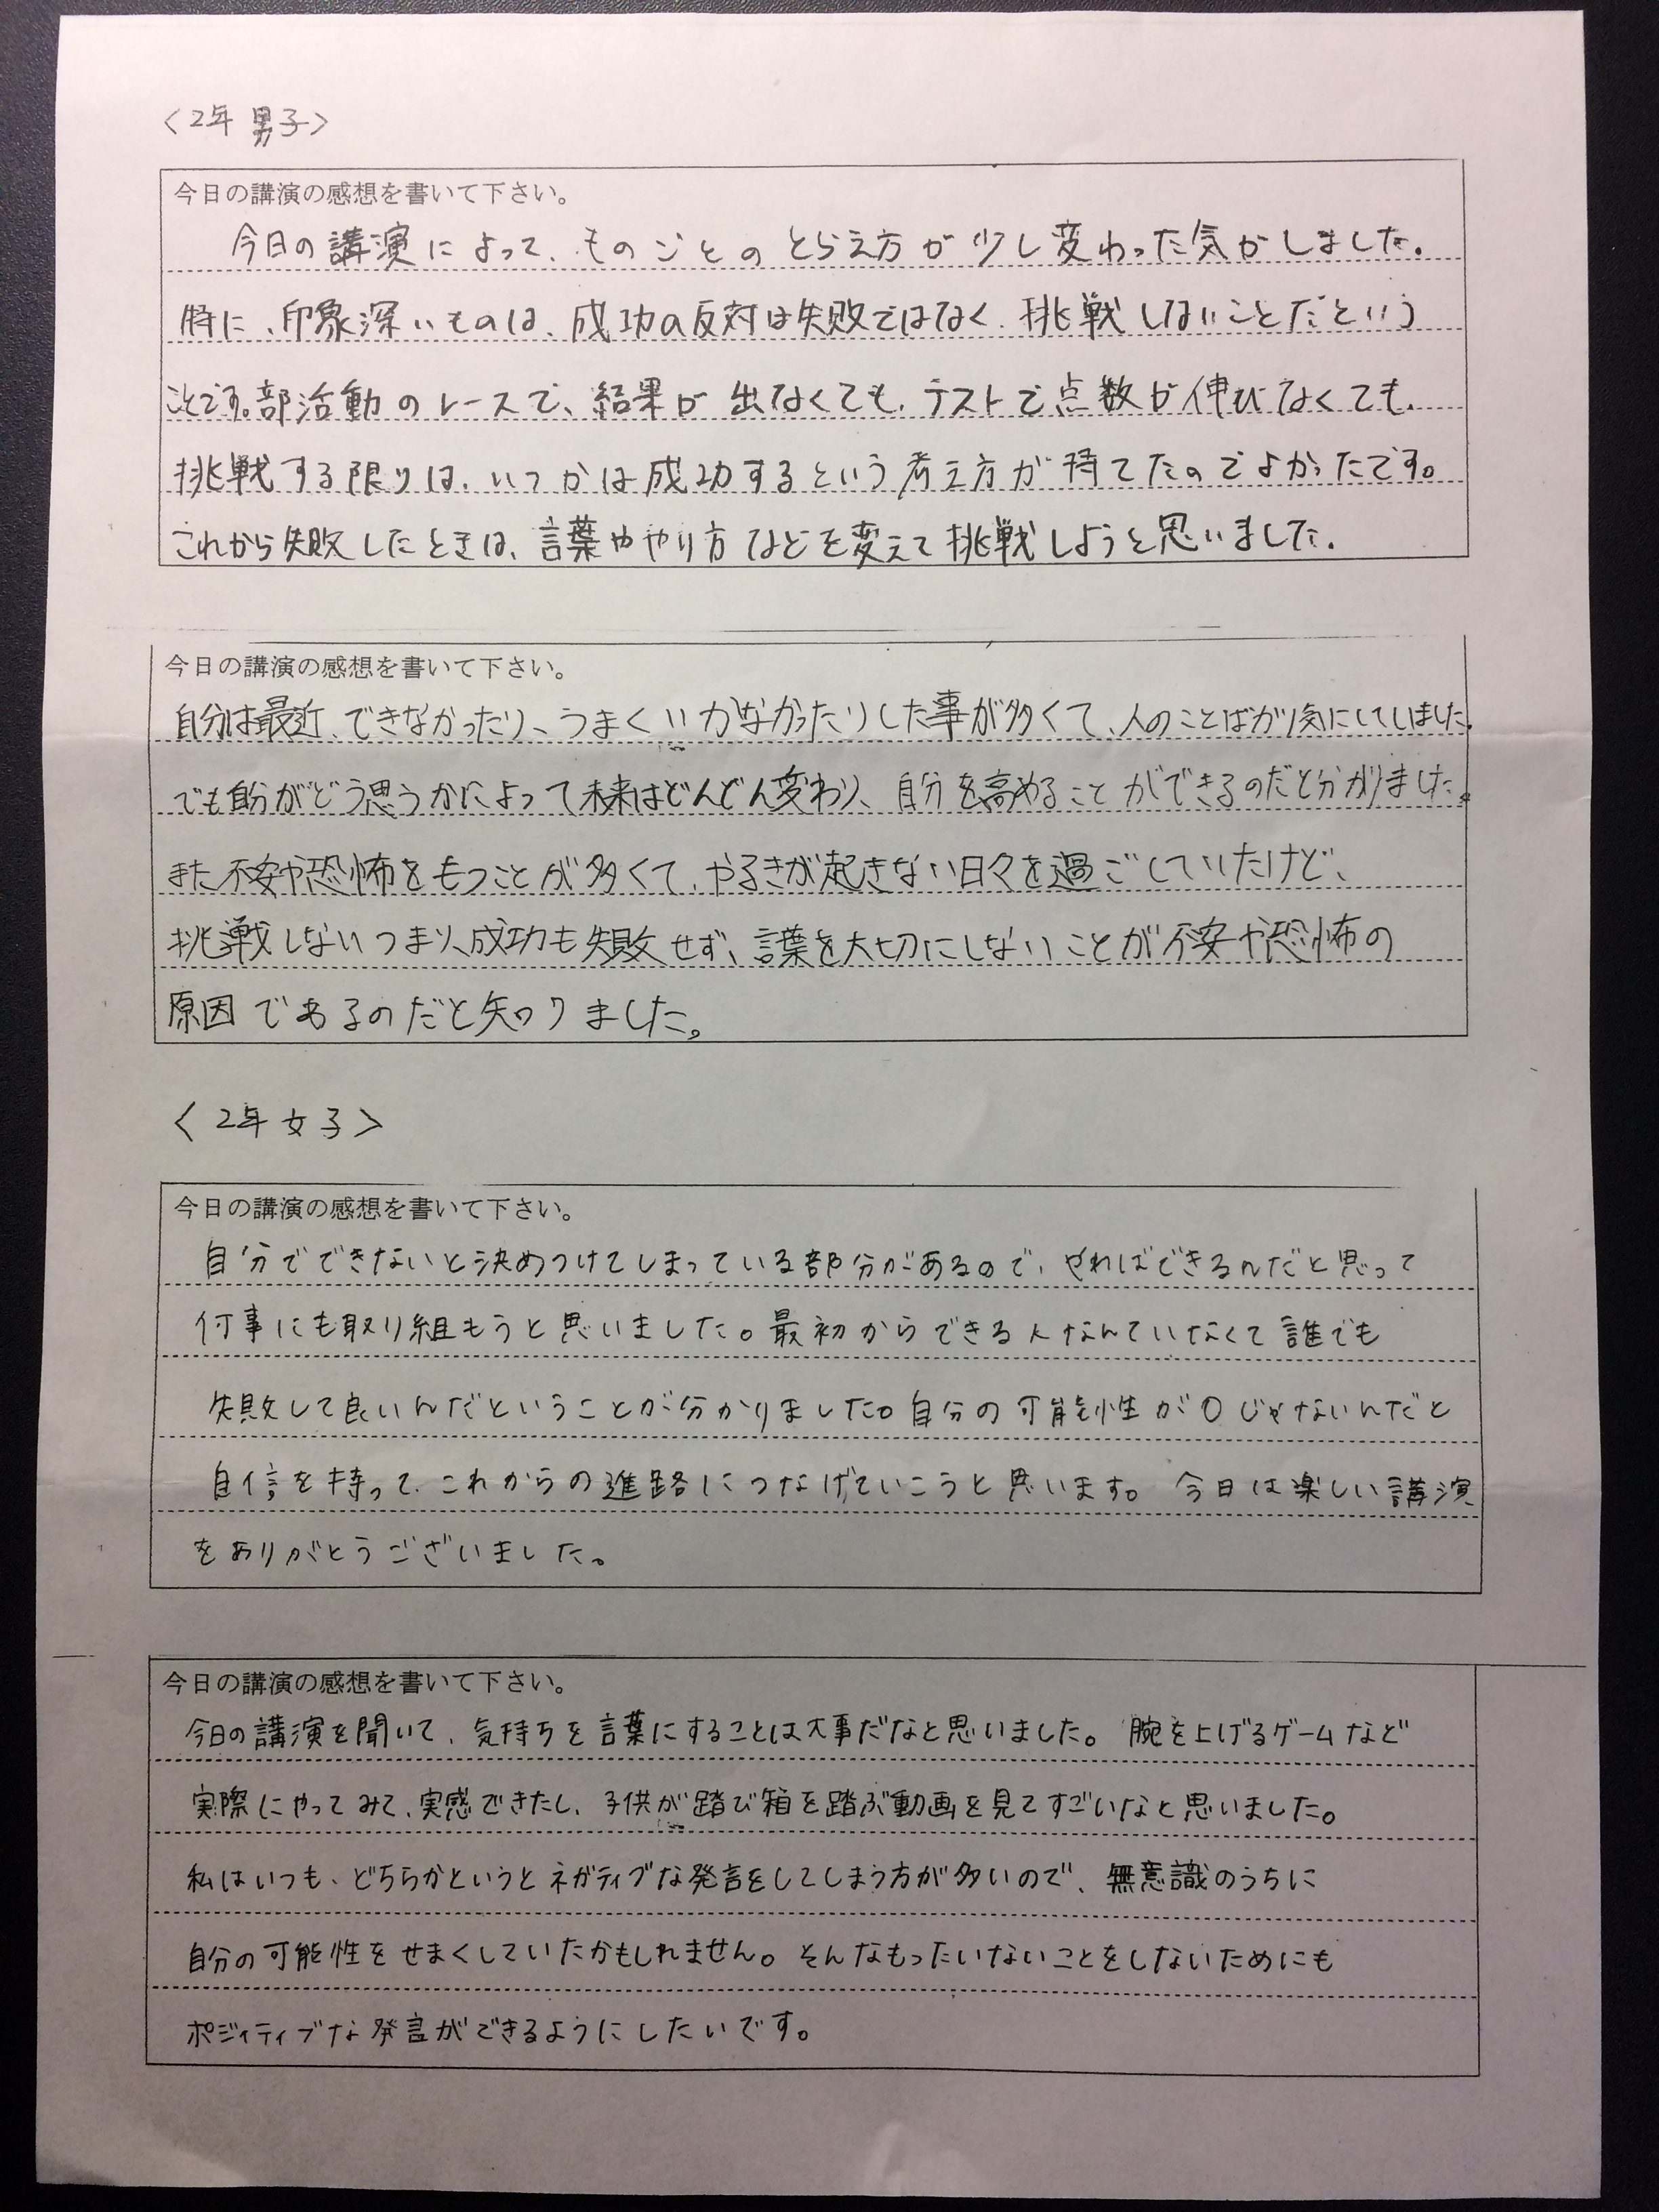 〈2年 男子〉
今日の講演の感想を書いて下さい。
今日の講演によって、ものごとのとらえ方が少し変わった気がしました。
特に、印象深いものは、成功の反対は失敗ではなく、挑戦しないことだという
ことです。部活動のレースで、結果が出なくても、テストで点数が伸びなくても、
挑戦する限りは、いつかは成功するという考え方が持てたのでよかったです。
これから失敗したときは、言葉ややり方などを変えて挑戦しようと思いました。
今日の講演の感想を書いて下さい。
自分は最近、できなかったり、うまくいかなかったりした事が多くて、人のことばかり気にしていました。
でも自分がどう思うかによって未来はどんどん変わり、自分を高めることができるのだと分かりました。
また不安や恐怖をもつことが多くて、やるきが起きない日々を過ごしていたけど、
挑戦しないつまり、成功も失敗せず、言葉を大切にしないことが不安や恐怖の
原因であるのだと知りました。
〈2年 女子〉
今日の講演の感想を書いて下さい。
自分でできないと決めつけてしまっている部分があるので、やればできるんだと思って
何事にも取り組もうと思いました。最初からできる人なんていなくて誰でも
失敗して良いんだということが分かりました。自分の可能性が0じゃないんだと
自信を持って、これからの進路につなげていこうと思います。今日は楽しい講演
をありがとうございました。
今日の講演の感想を書いて下さい。
今日の講演を聞いて、気持ちを言葉にすることは大事だなと思いました。腕を上げるゲームなど
実際にやってみて、実感できたし、子供が踏び箱を踏ぶ動画を見てすごいなと思いました。
私はいつも、どちらかというとネガティブな発言をしてしまう方が多いので、無意識のうちに
自分の可能性をせまくしていたかもしれません。そんなもったいないことをしないためにも
ポジィティブな発言ができるようにしたいです。